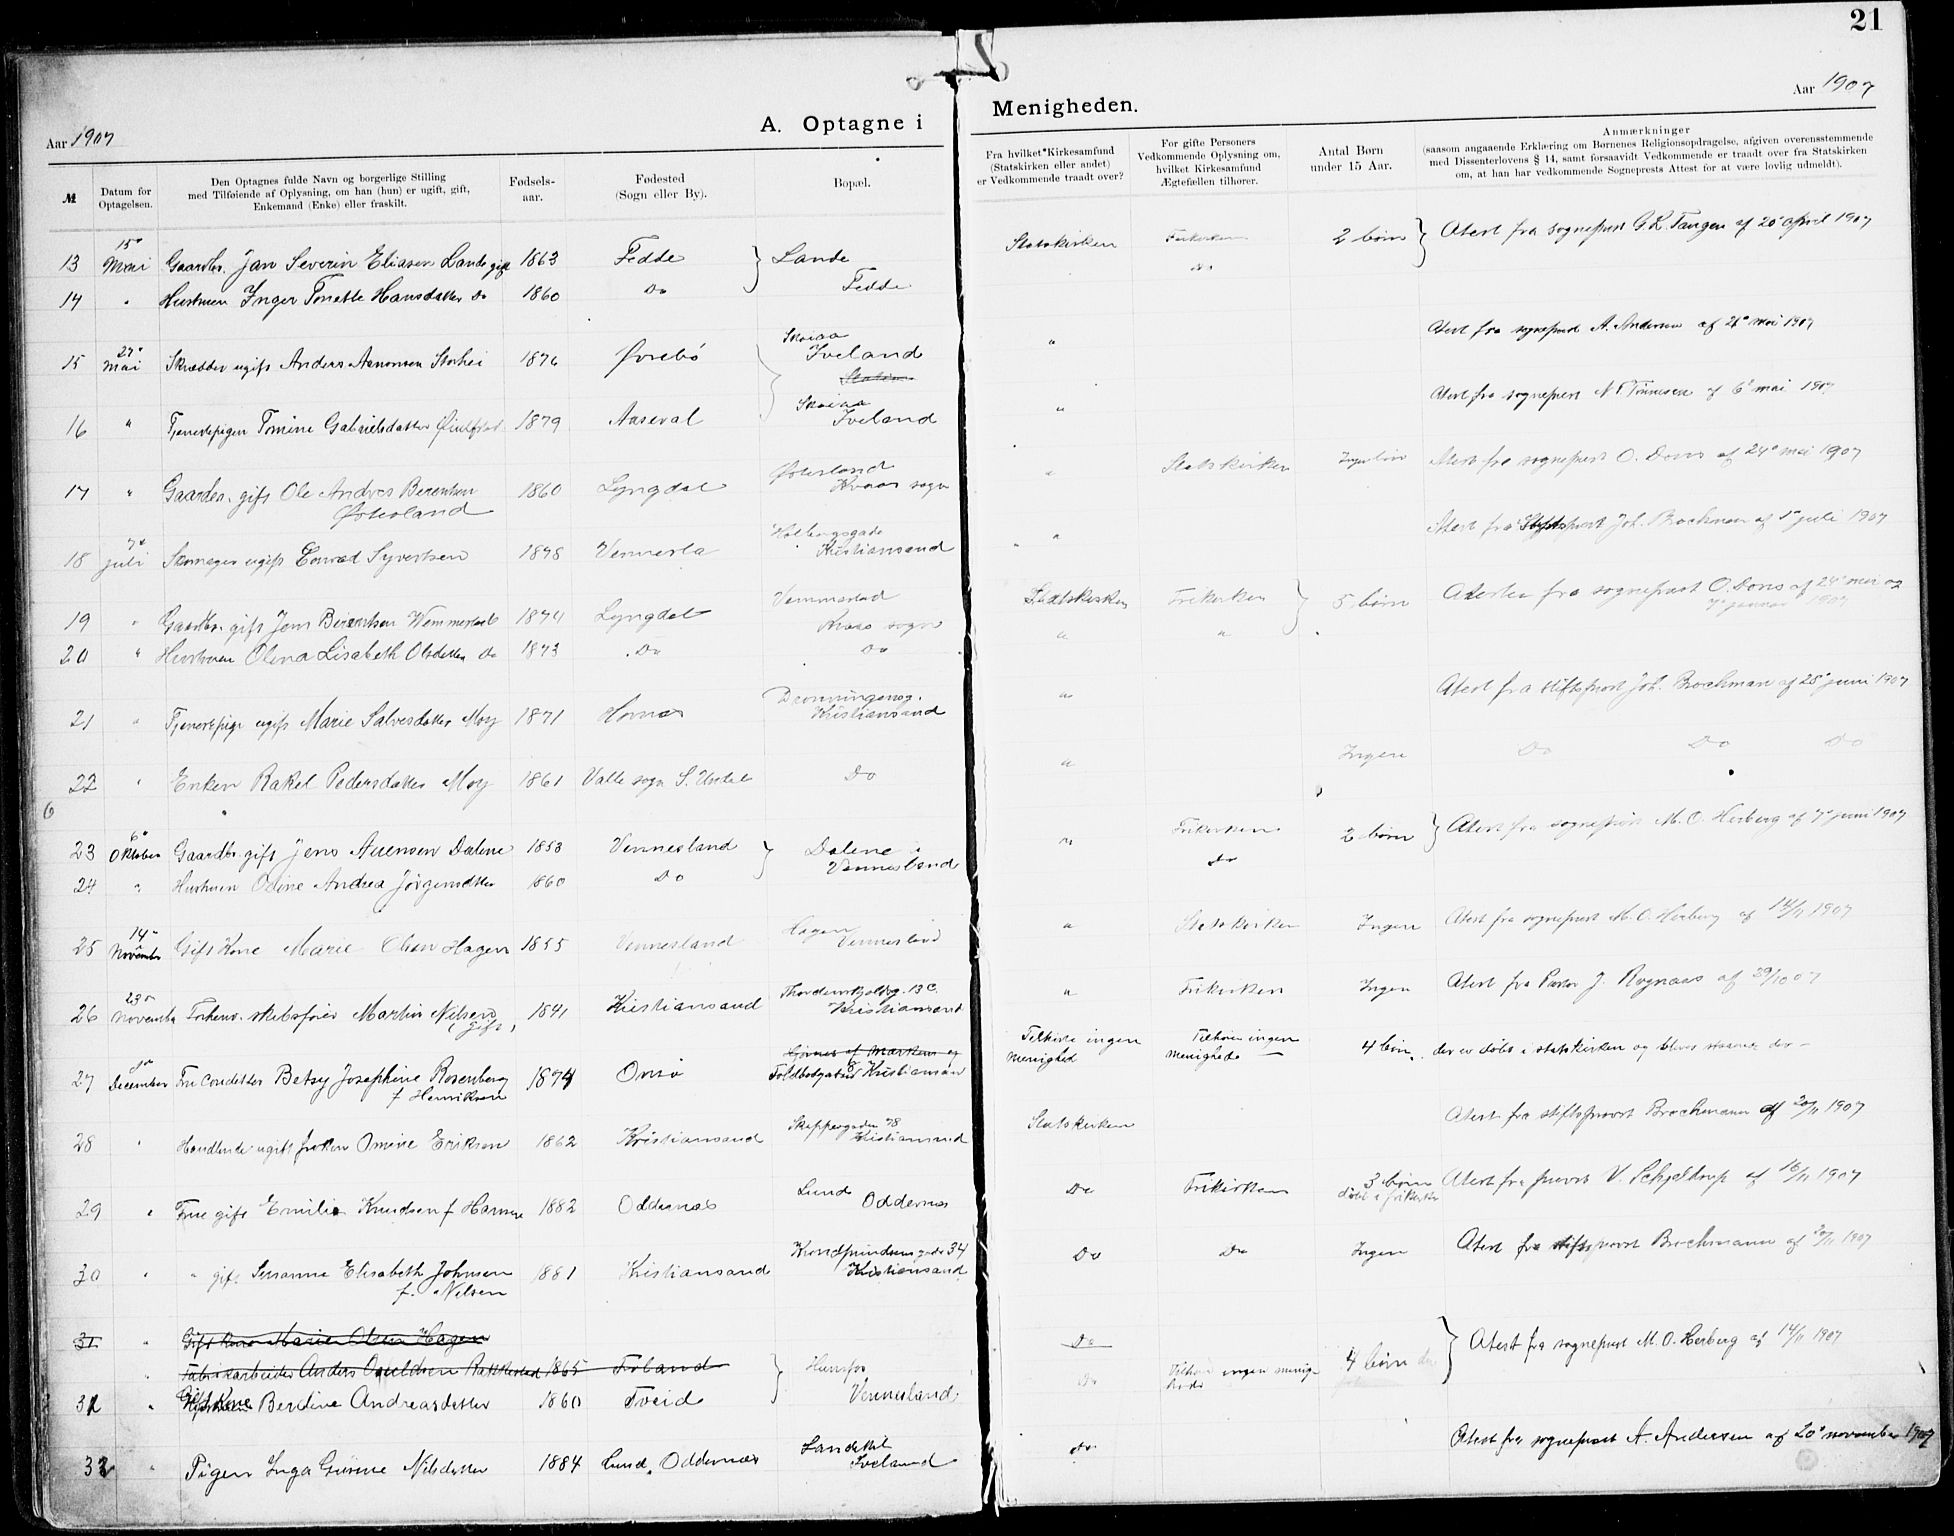 21
Aar 1907
A. Optagne i
Menigheden.
Aar 1907
№
Datum for Optagelsen.
Den Optagnes fulde Navn og borgerlige Stilling
med Tilføiende af Oplysning, om han (hun) er ugift, gift,
Enkemand (Enke) eller fraskilt.
Fødsels-
aar.
Fødested
(Sogn eller By).
Bopæl.
Fra hvilket Kirkesamfund
(Statskirken eller andet)
er Vedkommende traadt over?
For gifte Personers
Vedkommende Oplysning om,
hvilket Kirkesamfund
Ægtefællen tilhører.
Antal Børn
under 15 Aar.
Anmærkninger
(saasom angaaende Erklæring om Børnenes Religionsopdragelse, afgiven overensstemmende
med Dissenterlovens § 14, samt forsaavidt Vedkommende er traadt over fra Statskirken
om, at han har vedkommende Sogneprests Attest for at være lovlig udmeldt).
13 15° Mai Gaardbr. Jan Severin Eliasen Lande gift 1863 Fedde } Lande Statskirken Frikirken 2 børn } Atest fra sogneprest G. K. Tangen af 20 april 1907
14 " Hustruen Inger Tonette Hansdatter Do 1860 Do Fedde Do
15 27° Mai Skrædder ugift Anders Aanonsen Storhei 1876 Øvrebö Skaiaa Iveland " Atest fra sogneprest A. Andersen af 21° mai 1907
16 " Tjenestepigen Tomine Gabrielsdatter 1879 Aaseral Skaiaa Iveland " Atest fra sogneprest N. Tønnesen af 6° mai 1907
17 " Gaardbr. gift Ole Andres Berentsen Østerland 1860 Lyngdal Østerland Kvaas sogn " Statskirken Ingen børn Atest fra sogneprest O. Dons af 24° mai 1907
18 7° juli Skomager ugift Conrad Syvertsen 1878 Vennesla Holbergsgade Kristiansand " Atest fra Stiftsprost Joh. Brochman af 1° juli 1907
19 " Gaardbr. gift Jens Berentsen Vemmestad 1874 Lyngdal Vemmestad Kvaas sogn Statskirken Frikirken } 5 børn Atester fra sogneprest O. Dons af 24° mai og 7° januar 1907
20 " Hustruen Olena Lisabeth Olsdatter Do 1873 Do Do " "
21 " Tjenestepige ugift Marie Salvesdatter Moy 1871 Hornæs Dronningensg. Kristiansand " Atest fra stiftsprost Joh. Brochman af 28° juni 1907
22 " Enken Rakel Pedersdatter Moy 1861 Valle sogn S. Undal Do " Ingen Do Do Do
6
23 6° Oktober Gaardbr. gift Jens Auensen Dalene 1853 Vennesland } Dalene i Vennesland " Frikirken 2 børn } Atest fra sogneprest M. O. Herberg af 7° juni 1907
24 " Hustruen Odine Andrea Jørgensdatter 1860 Do Do
25 14° November Gift Kone Marie Olsen Hagen 1855 Vennesland Hagen Vennesland " Statskirken Ingen Atest fra sogneprest M. O. Herberg af 14/11 1907
26 23° November Forhenv. skibsfører Martin Nilsen (Gift) 1841 Kristiansand Thordenskjoldsg. 13 C. Kristiansand " Frikirken Ingen Atest fra Pastor J. Rognaas af 29/10 07
27 December Fru Betsy Josephine Rosenberg f Henriksen 1874 Onsø Toldbodgaten Kristiansand Tilhørte ingen Menighed Tilhører ingen Menighed 4 børn, der er døbt i statskirken og blive staaende der
28 " Handlende ugift frøken Omine Eriksen 1862 Kristiansand Skippergaden 78 Kristiansand Statskirken Atest fra stiftsprovst Brochmann af 20/11 1907
29 " Frue gift Emilie Knudsen f Hansen 1882 Oddernæs Lund Oddernæs Do Frikirken 3 børn døbt i frikirken Atest fra provst V. Schjeltrup af 16/11 1907
30 " " gift Susanne Elisabeth Johnsen f. Nilsen 1881 Kristiansand Kronprindsensgade 34 Kristiansand Do Do Ingen Atest fra stiftsprovst Brochmann af 20/11 1907
31 " Gift Kone Marie Olsen Hagen Do
" Fabrikarbeider Anders 1865 } Hunsfos Do Tilhører ingen menighed 4 børn } Atest fra sogneprest M. O. Herberg af 14/11 1907
31 " Gift Kone Berdine Andreasdatter 1860 Tveid Vennesland
32 " Pigen Inga Gurine Nilsdatter 1884 Lund, Oddernæs Iveland do Atest fra sogneprest A. Andersen af 20° november 1907